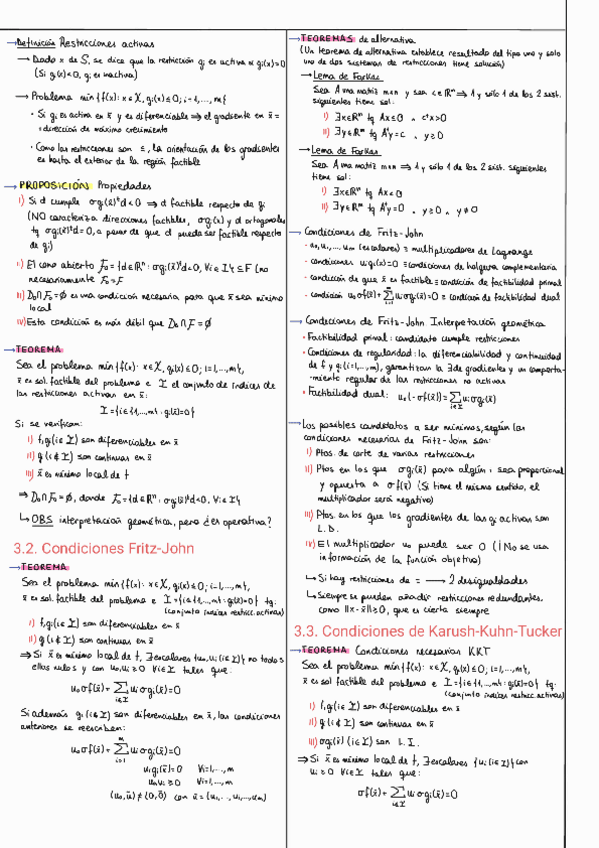 →Definición Restricciones activas
→ Dado x de S, se dice que la restricción gi es activa si gi(x)=0
(Si gi(x)<0, gi es inactiva)
→ Problema min{f(x): x∈X, gi(x)≤0; i=1,...,m}
· Si gi es activa en x̄ y es diferenciable ⇒ el gradiente en x̄ =
= dirección de máximo crecimiento
· Como las restricciones son ≤, la orientación de los gradientes
es hasta el exterior de la región factible
→ PROPOSICIÓN Propiedades
I) Si d cumple ∇gi(x̄)ᵗd<0 ⇒ d factible respecto de gi
(NO caracteriza direcciones factibles, ∇gi(x) y d ortogonales
tq ∇gi(x̄)ᵗd=0, a pesar de que d pueda ser factible respecto
de gi)
II) El cono abierto F₀={d∈ℝⁿ: ∇gi(x̄)ᵗd<0, ∀i∈I}⊆F (no
necesariamente F₀=F
III) D₀∩F₀=∅ es una condición necesaria para que x̄ sea mínimo
local
IV) Esta condición es más débil que D₀∩F=∅
→TEOREMA
Sea el problema min{f(x): x∈X, gi(x)≤0; i=1,...,m},
x̄ es sol. factible del problema e I el conjunto de índices de
las restricciones activas en x̄:
I={i∈{1,...,m}: gi(x̄)=0}
Si se verifican:
I) f,gi(i∈I) son diferenciables en x̄
II) gi(i∉I) son continuas en x̄
III) x̄ es mínimo local de f
⇒ D₀∩F₀=∅, donde F₀={d∈ℝⁿ: ∇gi(x̄)ᵗd<0, ∀i∈I}
↳ OBS interpretación geométrica, pero ¿es operativa?
3.2. Condiciones Fritz-John
→TEOREMA
Sea el problema min{f(x): x∈X, gi(x)≤0; i=1,...,m},
x̄ es sol. factible del problema e I={i∈{1,...,m}: gi(x̄)=0} tq:
(conjunto índices restricc. activas)
I) f,gi(i∈I) son diferenciables en x̄
II) gi(i∉I) son continuas en x̄
⇒ Si x̄ es mínimo local de f, ∃escalares {u₀,ui(i∈I)} no todos
ellos nulos y con u₀,ui≥0 ∀i∈I tales que:
u₀∇f(x̄)+∑ui∇gi(x̄)=0
i∈I
Si además gi(i∉I) son diferenciables en x̄, las condiciones
anteriores se reescriben:
u₀∇f(x̄)+∑ui∇gi(x̄)=0
uigi(x̄)=0 ∀i=1,...,m
u₀,ui≥0 ∀i=1,...,m
(u₀,ū)≠(0,0̄) con ū=(u₁,...,ui,...,um)
→TEOREMAS de alternativa
(Un teorema de alternativa establece resultado del tipo uno y solo
uno de dos sistemas de restricciones tiene solución)
→ Lema de Farkas
Sea A una matriz m×n y sea c∈ℝⁿ ⇒ 1 y sólo 1 de los 2 sist.
siguientes tiene sol:
I) ∃x∈ℝⁿ tq Ax≤0 , cᵗx>0
II) ∃y∈ℝᵐ tq Aᵗy=c , y≥0
→ Lema de Farkas
Sea A una matriz m×n ⇒ 1 y sólo 1 de los 2 sist. siguientes
tiene sol:
I) ∃x∈ℝⁿ tq Ax<0
II) ∃y∈ℝᵐ tq Aᵗy=0 , y≥0 , y≠0
→ Condiciones de Fritz-John
· u₀,u₁,..., um (escalares) = multiplicadores de Lagrange
· condiciones uigi(x)=0 = condiciones de holgura complementaria
· condición de que x̄ es factible = condición de factibilidad primal
· condición u₀∇f(x̄)+∑ui∇gi(x̄)=0 = condición de factibilidad dual
→ Condiciones de Fritz-John Interpretación geométrica
· Factibilidad primal: candidato cumple restricciones
· Condiciones de regularidad: la diferenciabilidad y continuidad
de f y gi(i=1,...,m), garantizan la ∃ de gradientes y un comporta-
-miento regular de las restricciones no activas
· Factibilidad dual: u₀(-∇f(x̄))=∑ui∇gi(x)
i∈I
→ Los posibles candidatos a ser mínimos, según las
condiciones necesarias de Fritz-John son:
I) Ptos. de corte de varias restricciones
II) Ptos en los que ∇gi(x̄) para algún i sea proporcional
y opuesta a ∇f(x̄) (Si tiene el mismo sentido, el
multiplicador será negativo)
III) Ptos. en los que los gradientes de las gi activas son
L.D.
IV) El multiplicador u₀ puede ser 0 (¡No se usa
información de la función objetivo)
↳ Si hay restricciones de = → 2 desigualdades
↳ Siempre se pueden añadir restricciones redundantes,
como ||x-x̄||≥0, que es cierta siempre
3.3. Condiciones de Karush-Kuhn-Tucker
→TEOREMA Condiciones necesarias KKT
Sea el problema min{f(x): x∈X, gi(x)≤0; i=1,...,m},
x̄ es sol factible del problema e I={i∈{1,...,m}: gi(x̄)=0} tq:
(conjunto índices restricc. activas)
I) f,gi(i∈I) son diferenciables en x̄
II) gi(i∉I) son continuas en x̄
III) ∇gi(x̄) (i∈I) son L.I.
⇒ Si x̄ es mínimo local de f, ∃escalares {ui(i∈I)} con
ui≥0 ∀i∈I tales que:
∇f(x̄)+∑ui∇gi(x̄)=0
i∈I